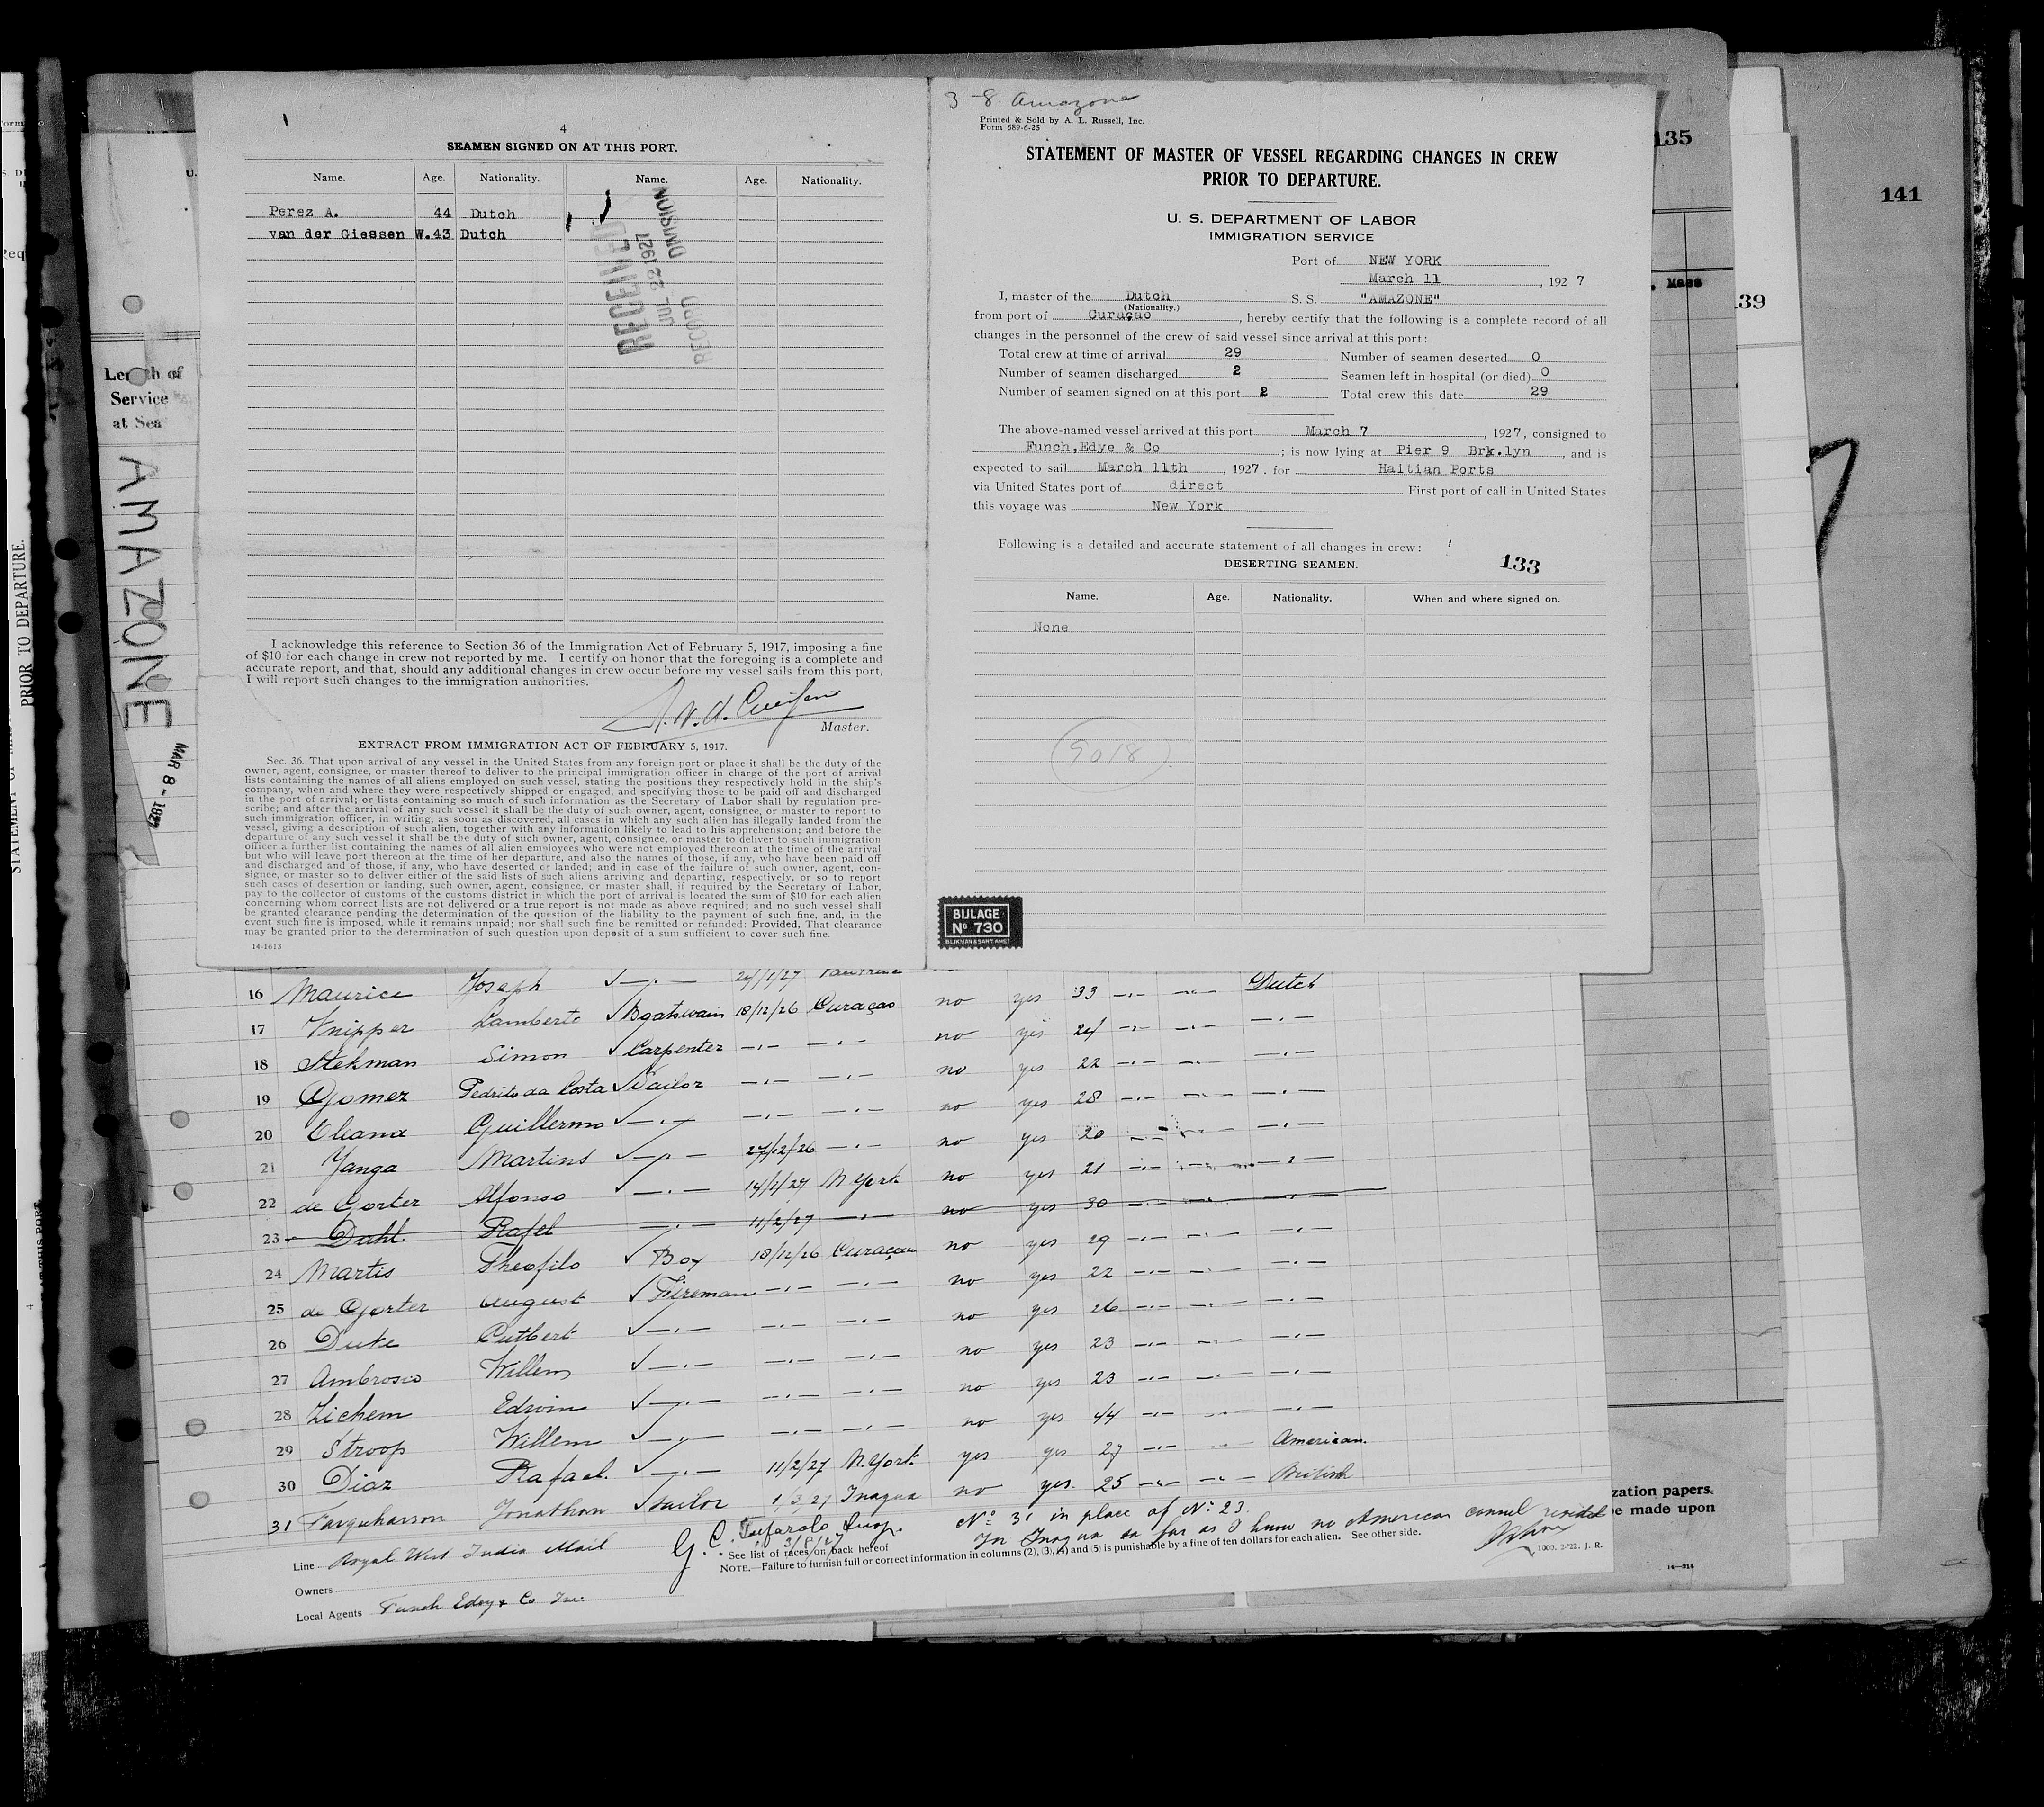 4
SEAMEN SIGNED ON AT THIS PORT.
Name. Age. Nationality. Name. Age. Nationality.
Perez A. 44 Dutch
van der Giessen W. 43 Dutch
RECEIVED
JUL 22 1927
RECORD DIVISION
I acknowledge this reference to Section 36 of the Immigration Act of February 5, 1917, imposing a fine
of $10 for each change in crew not reported by me. I certify on honor that the foregoing is a complete and
accurate report, and that, should any additional changes in crew occur before my vessel sails from this port,
I will report such changes to the immigration authorities.
Master.
EXTRACT FROM IMMIGRATION ACT OF FEBRUARY 5, 1917.
Sec. 36. That upon arrival of any vessel in the United States from any foreign port or place it shall be the duty of the
owner, agent, consignee, or master thereof to deliver to the principal immigration officer in charge of the port of arrival
lists containing the names of all aliens employed on such vessel, stating the positions they respectively hold in the ship's
company, when and where they were respectively shipped or engaged, and specifying those to be paid off and discharged
in the port of arrival; or lists containing so much of such information as the Secretary of Labor shall by regulation pre-
scribe; and after the arrival of any such vessel it shall be the duty of such owner, agent, consignee, or master to report to
such immigration officer, in writing, as soon as discovered, all cases in which any such alien has illegally landed from the
vessel, giving a description of such alien, together with any information likely to lead to his apprehension; and before the
departure of any such vessel it shall be the duty of such owner, agent, consignee, or master to deliver to such immigration
officer a further list containing the names of all alien employees who were not employed thereon at the time of the arrival
but who will leave port thereon at the time of her departure, and also the names of those, if any, who have been paid off
and discharged and of those, if any, who have deserted or landed; and in case of the failure of such owner, agent, con-
signee, or master so to deliver either of the said lists of such aliens arriving and departing, respectively, or so to report
such cases of desertion or landing, such owner, agent, consignee, or master shall, if required by the Secretary of Labor,
pay to the collector of customs of the customs district in which the port of arrival is located the sum of $10 for each alien
concerning whom correct lists are not delivered or a true report is not made as above required; and no such vessel shall
be granted clearance pending the determination of the question of the liability to the payment of such fine, and, in the
event such fine is imposed, while it remains unpaid; nor shall such fine be remitted or refunded: Provided, That clearance
may be granted prior to the determination of such question upon deposit of a sum sufficient to cover such fine.
14-1613
3-8 Amazone
Printed & Sold by A. L. Russell, Inc.
Form 689-6-25
STATEMENT OF MASTER OF VESSEL REGARDING CHANGES IN CREW
PRIOR TO DEPARTURE.
U. S. DEPARTMENT OF LABOR
IMMIGRATION SERVICE
Port of NEW YORK
March 11, 1927
I, master of the Dutch S. S. "AMAZONE"
(Nationality.)
from port of Curaçao, hereby certify that the following is a complete record of all
changes in the personnel of the crew of said vessel since arrival at this port:
Total crew at time of arrival 29 Number of seamen deserted 0
Number of seamen discharged 2 Seamen left in hospital (or died) 0
Number of seamen signed on at this port 2 Total crew this date 29
The above-named vessel arrived at this port March 7, 1927, consigned to
Funch,Edye & Co; is now lying at Pier 9 Brk.lyn, and is
expected to sail March 11th, 1927. for Haitian Ports
via United States port of direct First port of call in United States
this voyage was New York
Following is a detailed and accurate statement of all changes in crew:
DESERTING SEAMEN. 133
Name. Age. Nationality. When and where signed on.
None
5018
BIJLAGE
No 730
BLIKMAN & SART. AMST.
135
141
139
, Mass
Length of
Service
at Sea
AMAZONE
MAR 8 - 1927
PRIOR TO DEPARTURE.
16 Maurice Joseph no yes 33 Dutch
17 Knipper Lamberto Boatswain 18/12/26 Curaçao no yes 24
18 Stekman Simon Carpenter no yes 22
19 Gomez Pedrito da Costa Sailor no yes 28
20 Oleana Guillermo no yes 20
21 Yanga Martins 27/12/26 no yes 21
22 de Gorter Alfonso 14/1/27 N York no yes 30
23 Dahl. Rafel 11/2/27 no yes 29
24 Martis Theofilo Boy 18/12/26 Curaçao no yes 22
25 de Gorter August Fireman no yes 26
26 Duke Cutbert no yes 23
27 Ambrosio Willem no yes 23
28 Zichem Edwin no yes 44
29 Stroop Willem yes yes 27 American.
30 Diaz Rafael. 11/2/27 N.York no yes. 25 British
31 Farquharson Jonathan Sailor 1/3/27 Inagua
No 31 in place of No 23.
In Inagua as far as I know no American consul resided
Line Royal West India Mail
3/8/27
See list of races on back hereof
NOTE.—Failure to furnish full or correct information in columns (2), (3), (4) and (5) is punishable by a fine of ten dollars for each alien. See other side.
Owners
Local Agents Funch Edey & Co Inc.
zation papers.
be made upon
14—214